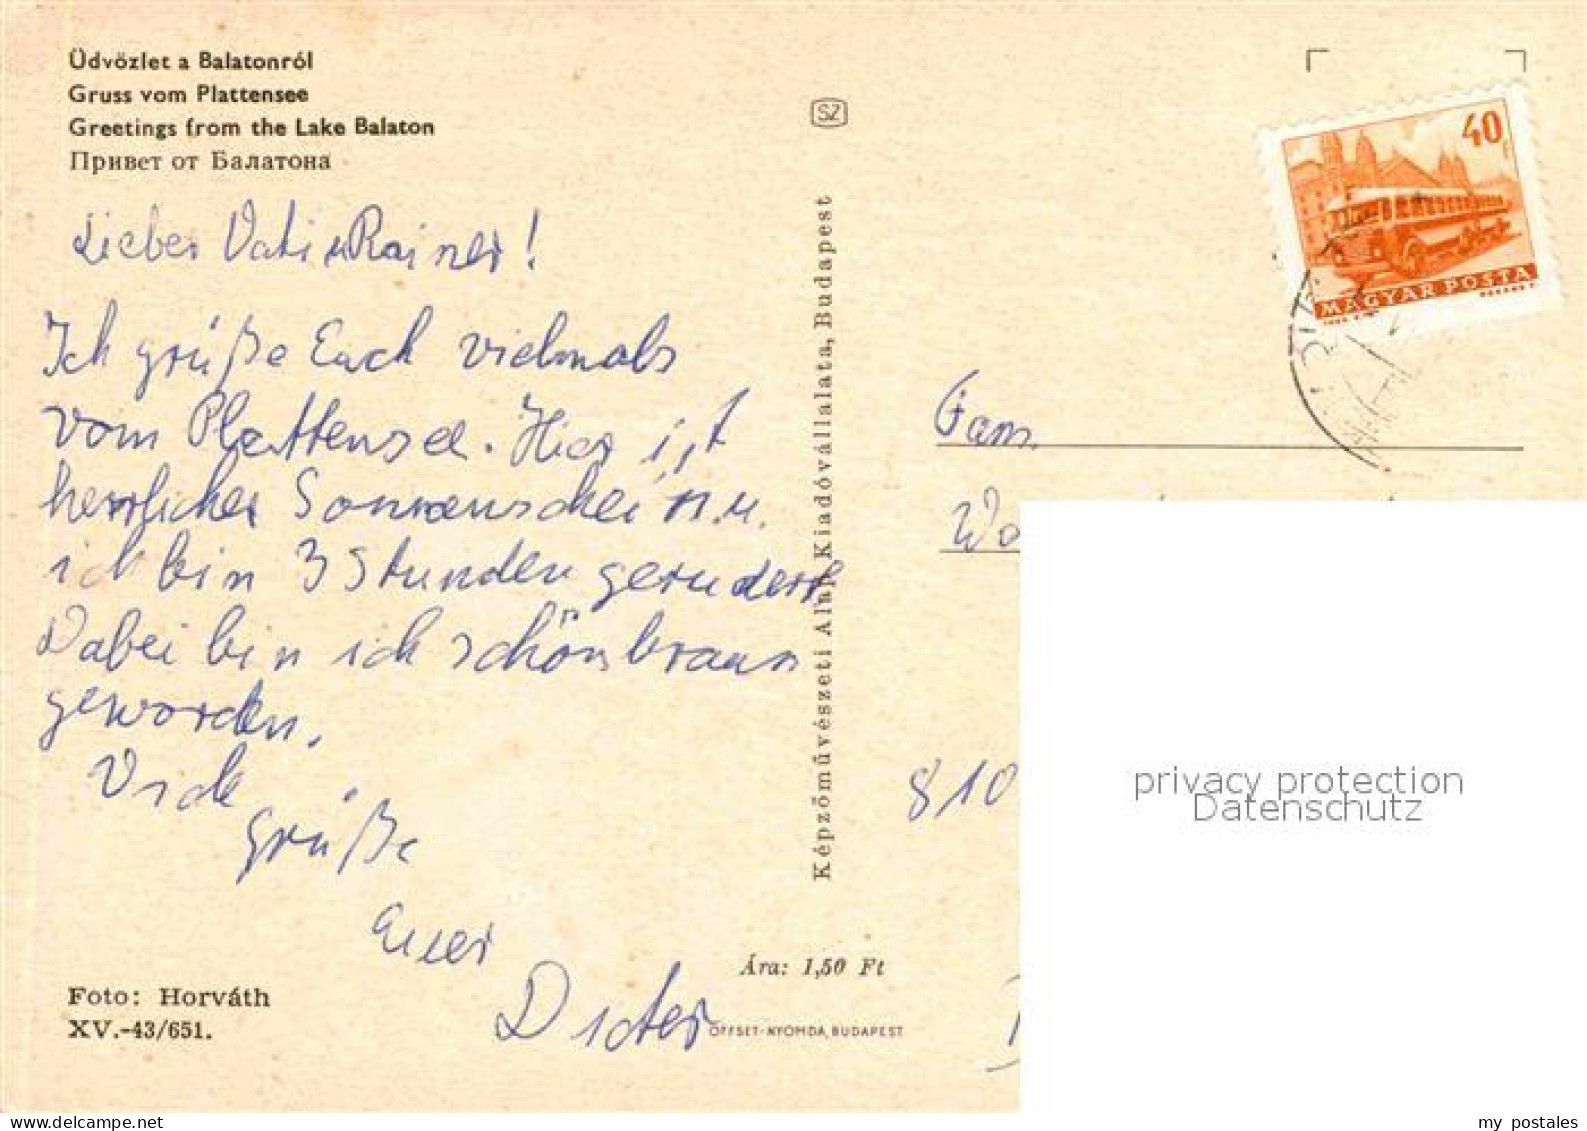 Üdvözlet a Balatonról
Gruss vom Plattensee
Greetings from the Lake Balaton
Привет от Балатона
Lieber Vati u Rainer!
Ich grüße Euch vielmals
vom Plattensee. Hier ist
herrlicher Sonnenschein u.
ich bin 3 Stunden gerudert
Dabei bin ich schön braun
geworden.
Viele
Grüße
Euer
Dieter
Foto: Horváth
XV.-43/651.
SZ
Képzőművészeti Alap Kiadóvállalata, Budapest
Ára: 1,50 Ft
OFFSET-NYOMDA, BUDAPEST
40 f
MAGYAR POSTA
Fam.
810
privacy protection
Datenschutz
my postales